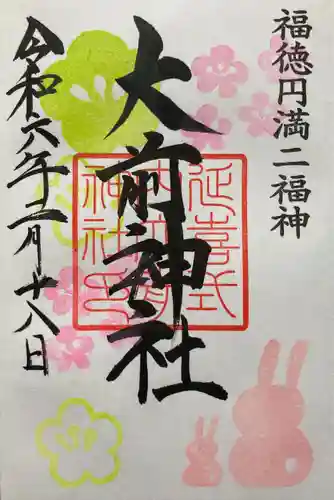 福徳円満二福神
大前神社
延喜式
神社
令和六年二月十八日